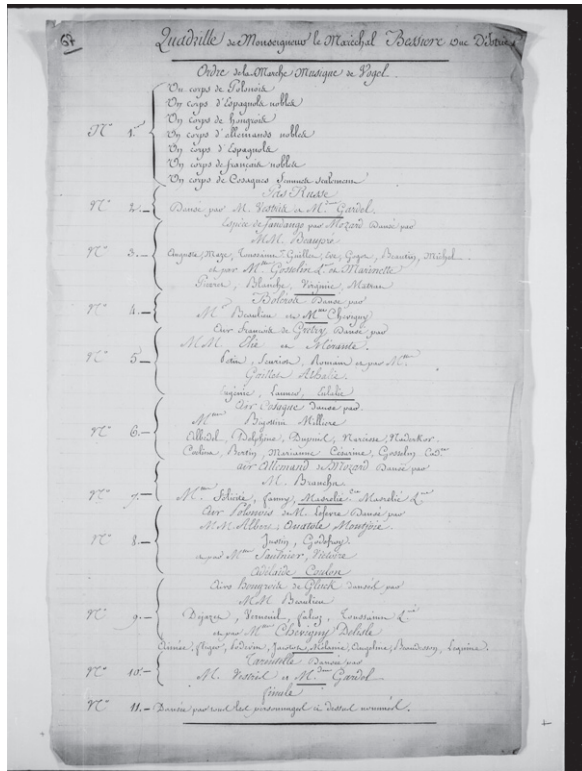 67
Quadrille de Monseigneur le Maréchal Bessiere Duc D'Istrie
Ordre de la Marche Musique de Vogel.
Un corps de Polonois
Un corps d'Espagnols nobles
Un corps de hongrois
Un corps d'allemands nobles
Nº 1er Un corps d'Espagnols
Un corps de français nobles
Un corps de Cosaques femmes seulement
Pas Russe
Nº 2. Dansé par M. Vestris et Mme Gardel
Espèce de fandango par Mozard Dansé par
MM. Beaupré
Nº 3. Auguste, Maze, Toussaint, Guillet, Eve, Gogot, Beautin, Michel
et par Mlle Gosselin L. et Marinette
Blanche, Virginie
Boleros Dansé par
Nº 4. Mr Beaulieu et Mme Chevigny
Air français de Gretry Dansé par
MM Elie et Morante.
Nº 5 Romain et par Mmes
Gaillet Athalie.
Eugénie, Eulalie
Air Cosaque dansé par.
Nº 6. Mmes Bigottini Milliere
Delphine, Dupuis, Narcisse, Naderkor.
Caroline, Bertin, Marianne Césarine, Gosselin Cad.
Air Allemand de Mozard Dansé par
M. Branchu
Nº 7. Mmes Félicité, Fanny, Masrelié
Air Polonois de M. Lefevre Dansé par
MM Albert, Anatole Montjoie
Nº 8. Justin, Godefroy
et par Mmes Saulnier, Victoire
Adélaïde Coulon
Airs Hongrois de Gluck dansés par
MM Beaulieu
Nº 9. Verneuil, Toussaint
et par Mmes Chevigny Delisle
Aimée, Mélanie, Angeline, Lequine.
Tarentelle Dansée par
Nº 10. M. Vestris et Mme Gardel
finale
Nº 11. Dansée par tous les personnages ci dessus nommés.